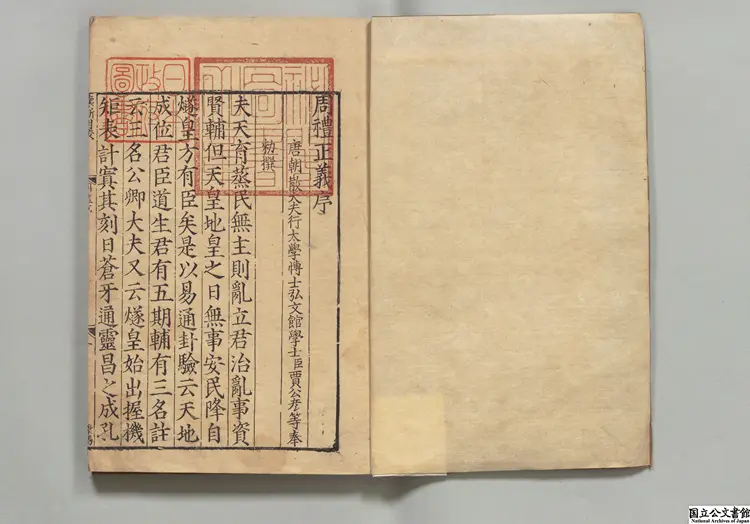 周禮正義序
唐朝散大夫行太學博士弘文館學士臣賈公彦等奉
勅撰
夫天育蒸民無主則亂立君治亂事資
賢輔但天皇地皇之日無事安民降自
燧皇方有臣矣是以易通卦驗云天地
成位君臣道生君有五期輔有三名註
云三名公卿大夫又云燧皇始出握機
矩表計寘其刻日蒼牙通靈昌之成孔
日本
政府
圖書
国立公文書館
National Archives of Japan